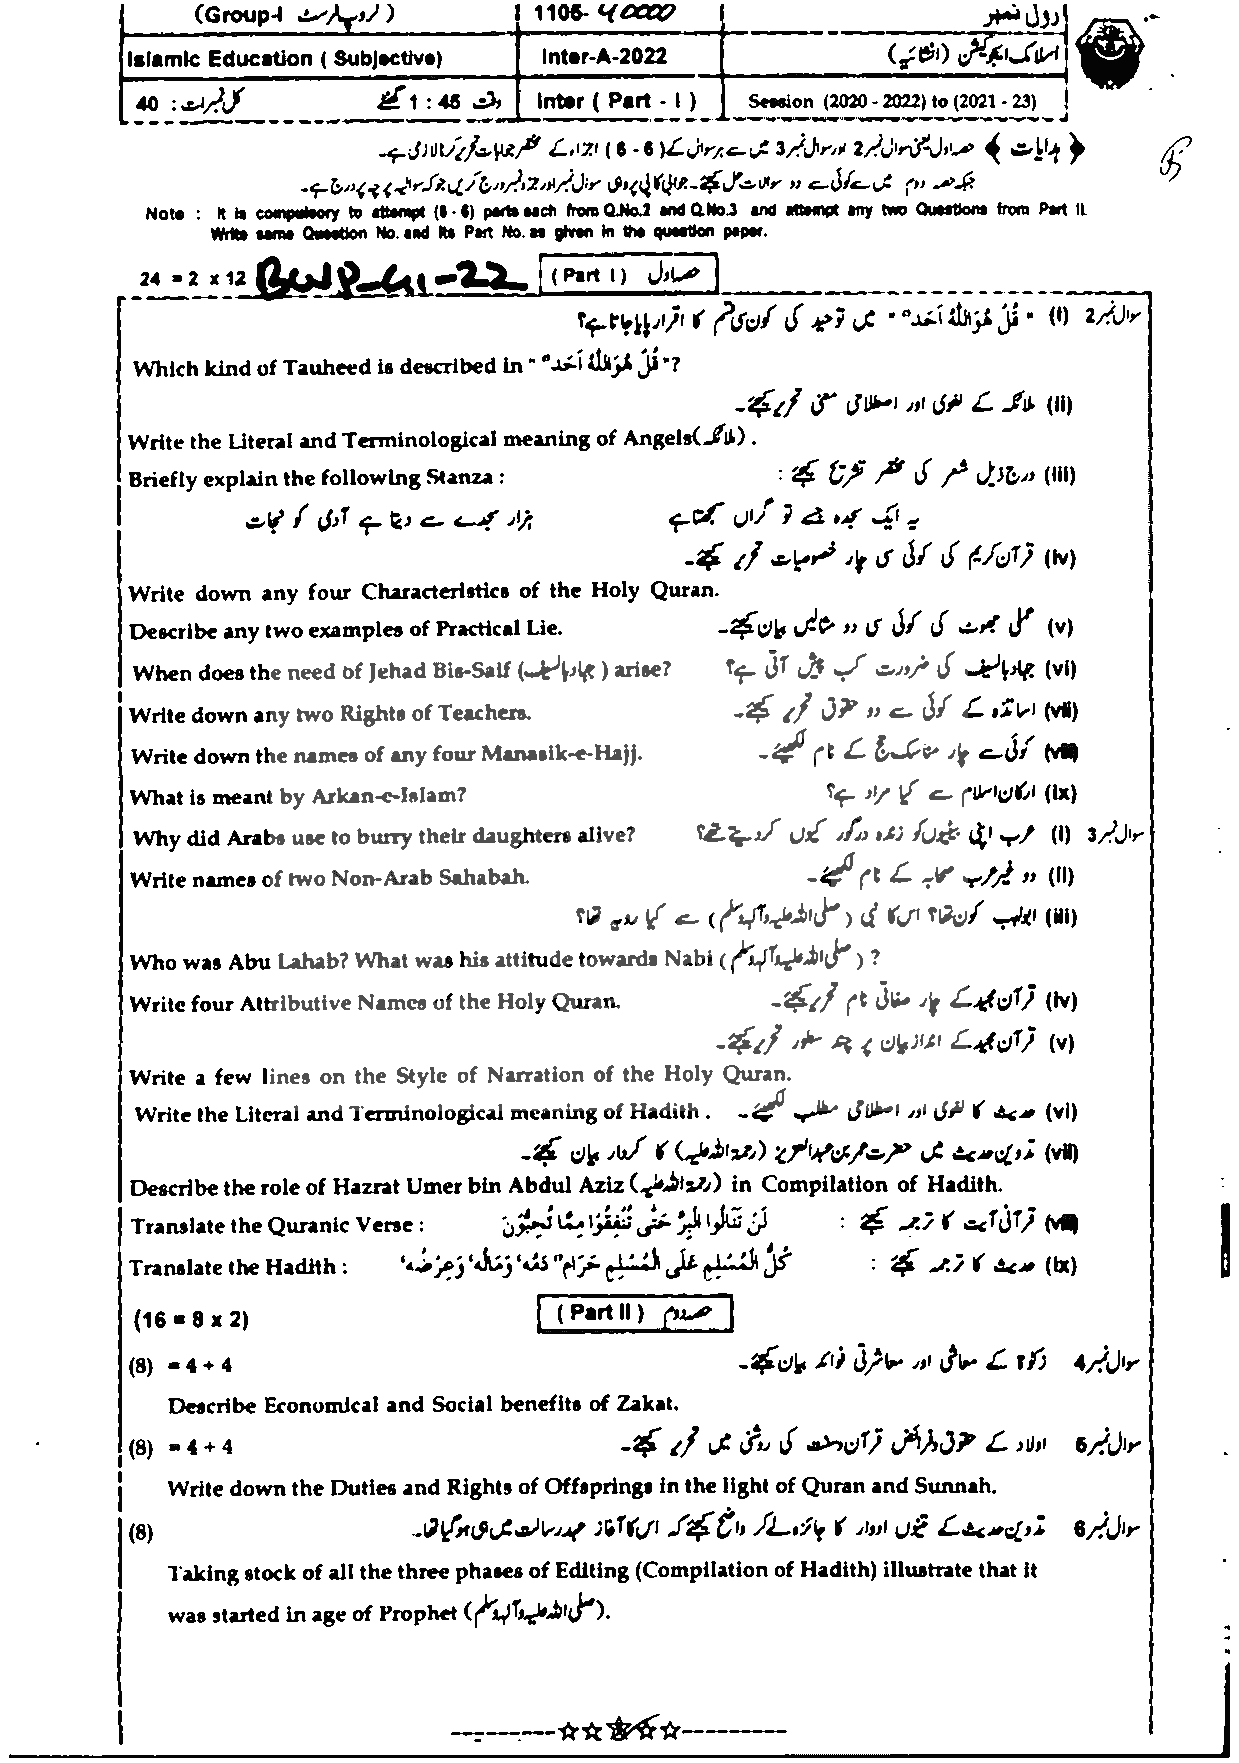 (Group-I فرسٹ پارٹ) 1106-40000 رول نمبر
Islamic Education ( Subjective) Inter-A-2022 اسلامک ایجوکیشن (انشائیہ)
کل نمبرات : 40 وقت 1 : 45 گھنٹے Inter ( Part - I ) Session (2020 - 2022) to (2021 - 23)
﴿ ہدایات ﴾ حصہ اول یعنی سوال نمبر 2 اور سوال نمبر 3 میں سے ہر سوال کے (6 - 6) اجزاء کے مختصر جوابات تحریر کرنا لازمی ہے۔
جبکہ حصہ دوم میں سے کوئی سے دو سوالات حل کیجئے۔ جوابی کاپی پر وہی سوال نمبر اور جزو نمبر درج کریں جو کہ سوالیہ پرچہ پر درج ہے۔
Note : It is compulsory to attempt (6 - 6) parts each from Q.No.2 and Q.No.3 and attempt any two Questions from Part II.
Write same Question No. and its Part No. as given in the question paper.
24 = 2 x 12 BWP-G1-22 ( Part I ) حصہ اول
سوال نمبر 2 (i) " قُلْ هُوَ اللّٰهُ اَحَد" " میں توحید کی کون سی قسم کا اقرار پایا جاتا ہے؟
Which kind of Tauheed is described in " قُلْ هُوَ اللّٰهُ اَحَد" "?
(ii) ملائکہ کے لغوی اور اصطلاحی معنی تحریر کیجئے۔
Write the Literal and Terminological meaning of Angels(ملائکہ) .
Briefly explain the following Stanza : (iii) درج ذیل شعر کی مختصر تشریح کیجئے :
یہ ایک سجدہ جسے تو گراں سمجھتا ہے ہزار سجدے سے دیتا ہے آدمی کو نجات
(iv) قرآن کریم کی کوئی سی چار خصوصیات تحریر کیجئے۔
Write down any four Characteristics of the Holy Quran.
Describe any two examples of Practical Lie. (v) عملی جھوٹ کی کوئی سی دو مثالیں بیان کیجئے۔
When does the need of Jehad Bis-Saif (جہاد بالسیف) arise? (vi) جہاد بالسیف کی ضرورت کب پیش آتی ہے؟
Write down any two Rights of Teachers. (vii) اساتذہ کے کوئی سے دو حقوق تحریر کیجئے۔
Write down the names of any four Manasik-e-Hajj. (viii) کوئی سے چار مناسک حج کے نام لکھیئے۔
What is meant by Arkan-e-Islam? (ix) ارکان اسلام سے کیا مراد ہے؟
Why did Arabs use to burry their daughters alive? سوال نمبر 3 (i) عرب اپنی بیٹیوں کو زندہ درگور کیوں کر دیتے تھے؟
Write names of two Non-Arab Sahabah. (ii) دو غیر عرب صحابہ کے نام لکھیئے۔
(iii) ابولہب کون تھا؟ اس کا نبی (صلی اللہ علیہ وآلہ وسلم) سے کیا رویہ تھا؟
Who was Abu Lahab? What was his attitude towards Nabi (صلی اللہ علیہ وآلہ وسلم) ?
Write four Attributive Names of the Holy Quran. (iv) قرآن مجید کے چار صفاتی نام تحریر کیجئے۔
(v) قرآن مجید کے انداز بیان پر چند سطور تحریر کیجئے۔
Write a few lines on the Style of Narration of the Holy Quran.
Write the Literal and Terminological meaning of Hadith . (vi) حدیث کا لغوی اور اصطلاحی مطلب لکھیئے۔
(vii) تدوین حدیث میں حضرت عمر بن عبدالعزیز (رحمۃ اللہ علیہ) کا کردار بیان کیجئے۔
Describe the role of Hazrat Umer bin Abdul Aziz (رحمۃ اللہ علیہ) in Compilation of Hadith.
Translate the Quranic Verse : لَنْ تَنَالُوا الْبِرَّ حَتّٰى تُنْفِقُوْا مِمَّا تُحِبُّوْنَ (viii) قرآنی آیت کا ترجمہ کیجئے :
Translate the Hadith : كُلُّ الْمُسْلِمِ عَلَى الْمُسْلِمِ حَرَام" دَمُه' وَمَالُه' وَعِرْضُه' (ix) حدیث کا ترجمہ کیجئے :
(16 = 8 x 2) ( Part II ) حصہ دوم
(8) = 4 + 4 سوال نمبر 4 زکوٰۃ کے معاشی اور معاشرتی فوائد بیان کیجئے۔
Describe Economical and Social benefits of Zakat.
(8) = 4 + 4 سوال نمبر 5 اولاد کے حقوق و فرائض قرآن و سنت کی روشنی میں تحریر کیجئے۔
Write down the Duties and Rights of Offsprings in the light of Quran and Sunnah.
(8) سوال نمبر 6 تدوین حدیث کے تینوں ادوار کا جائزہ لے کر واضح کیجئے کہ اس کا آغاز عہد رسالت میں ہی ہو گیا تھا۔
Taking stock of all the three phases of Editing (Compilation of Hadith) illustrate that it
was started in age of Prophet (صلی اللہ علیہ وآلہ وسلم).